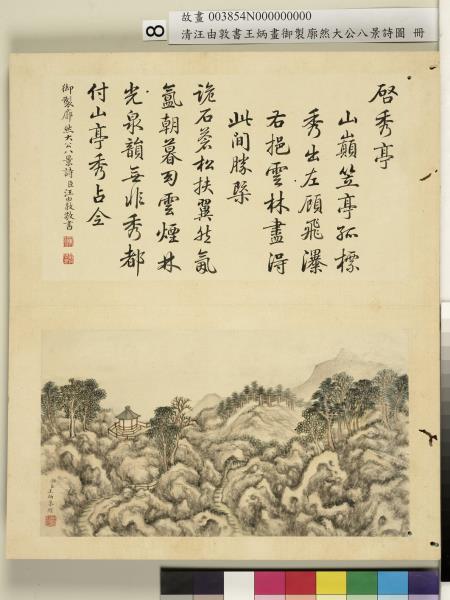 故畫 003854N000000000
清汪由敦書王炳畫御製廓然大公八景詩圖 冊
8
啓秀亭
山巔笠亭孤標
秀出左顧飛瀑
右挹雲林盡得
此間勝槩
詭石蒼松扶翼然氤
氳朝暮雲煙林
光泉韻無非秀都
付山亭秀占全
御製廓然大公八景詩臣汪由敦敬書
臣王炳恭繪